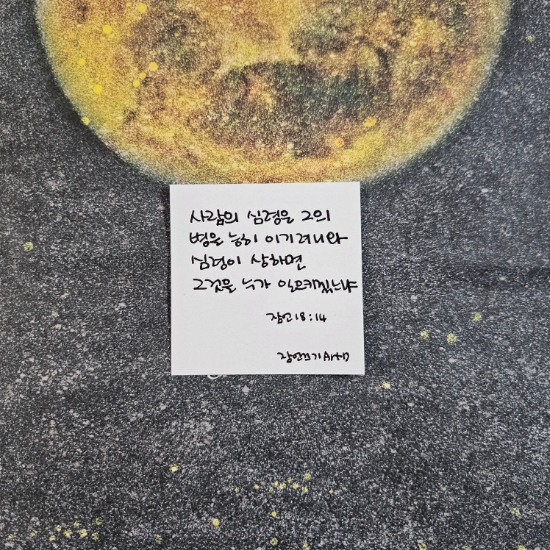 사람의 심령은 그의
병을 능히 이기려니와
심령이 상하면
그것을 누가 일으키겠느냐
잠언 18:14